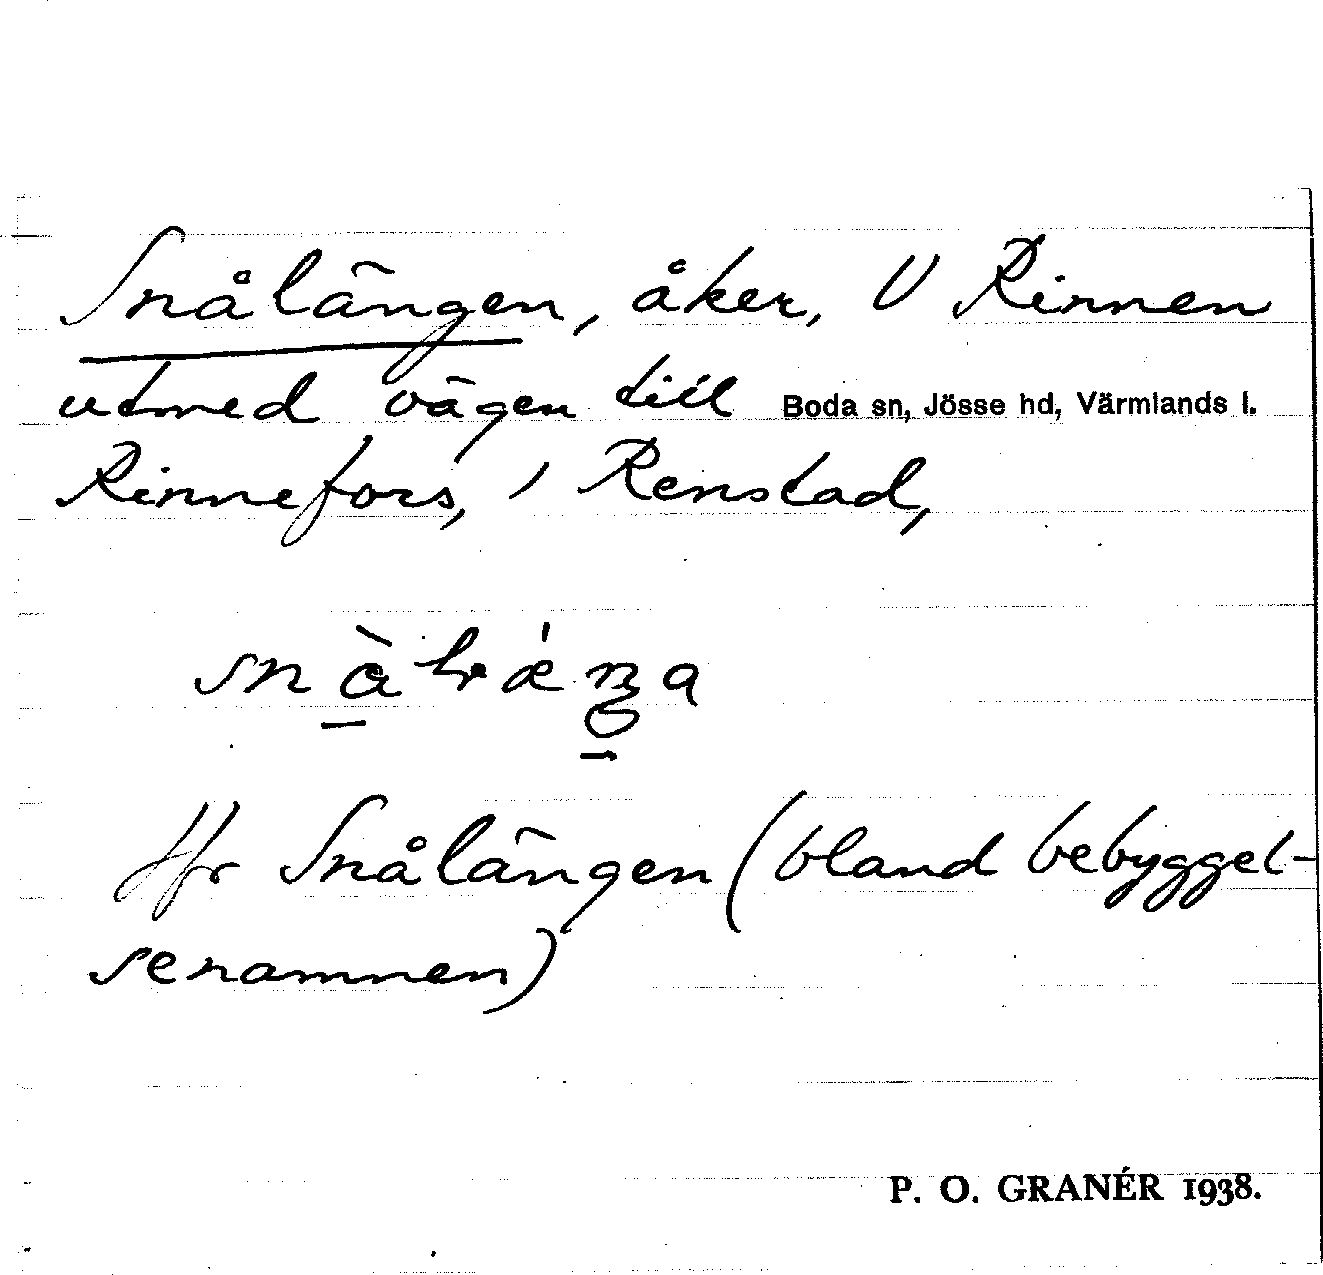 Snålängen, åker, V Rinnen
utmed vägen till Boda sn, Jösse hd, Värmlands l.
Rinnefors, i Renstad,
Jfr Snålängen (bland bebyggel-
senamnen)
P. O. GRANÉR 1938.